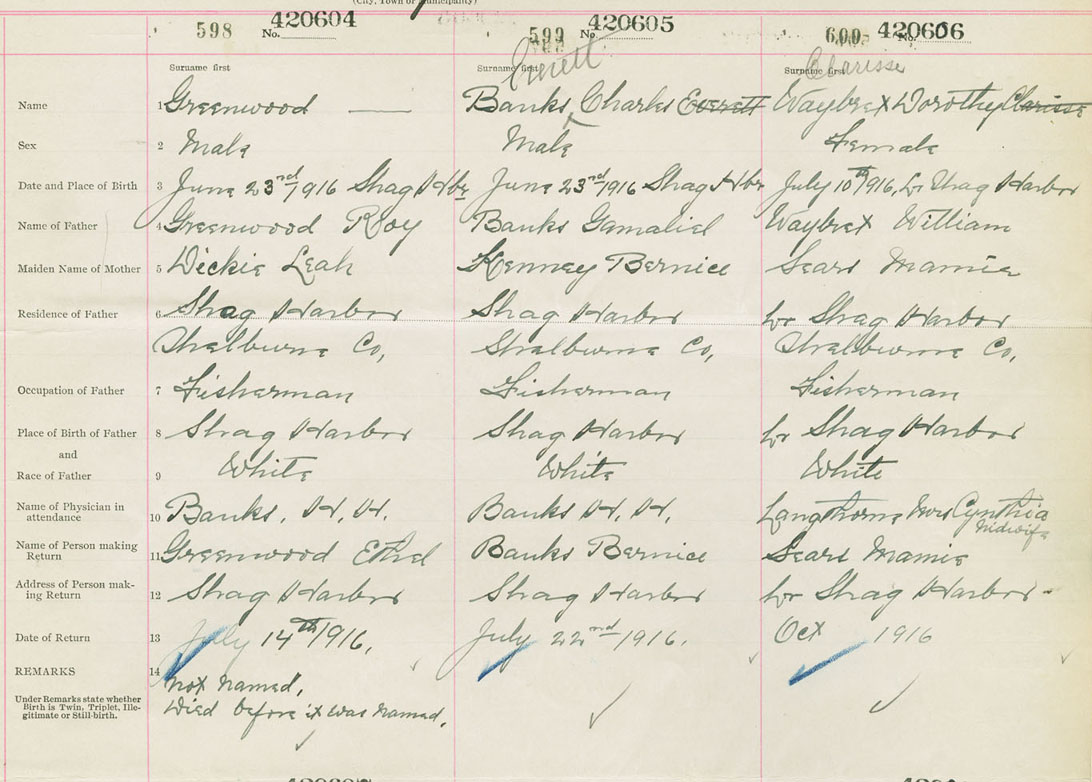 (City, Town or Municipality)
598 No. 420604 599 No. 420605 600 No. 420606
Surname first Surname first Surname first
Everett Clarisse
Name 1 Greenwood — Banks, Charles Everett Waybret Dorothy Clarisse
Sex 2 Male Male Female
Date and Place of Birth 3 June 23rd 1916 Shag Hbr June 23rd 1916 Shag Hbr July 10th 1916, Lr Shag Harbor
Name of Father 4 Greenwood Roy Banks Gamaliel Waybret William
Maiden Name of Mother 5 Dickie Leah Kenney Bernice Sears Mamie
Residence of Father 6 Shag Harbor Shag Harbor Lr Shag Harbor
Shelburne Co, Shelburne Co, Shelburne Co,
Occupation of Father 7 Fisherman Fisherman Fisherman
Place of Birth of Father 8 Shag Harbor Shag Harbor Lr Shag Harbor
and
Race of Father 9 White White White
Name of Physician in attendance 10 Banks, H, H. Banks H, H, Langthorne Mrs Cynthia
Midwife
Name of Person making Return 11 Greenwood Ethel Banks Bernice Sears Mamie
Address of Person mak-ing Return 12 Shag Harbor Shag Harbor Lr Shag Harbor
Date of Return 13 July 14th 1916, July 22nd 1916. Oct 1916
REMARKS 14 not named,
Under Remarks state whether Birth is Twin, Triplet, Ille-gitimate or Still-birth. Died before it was named,